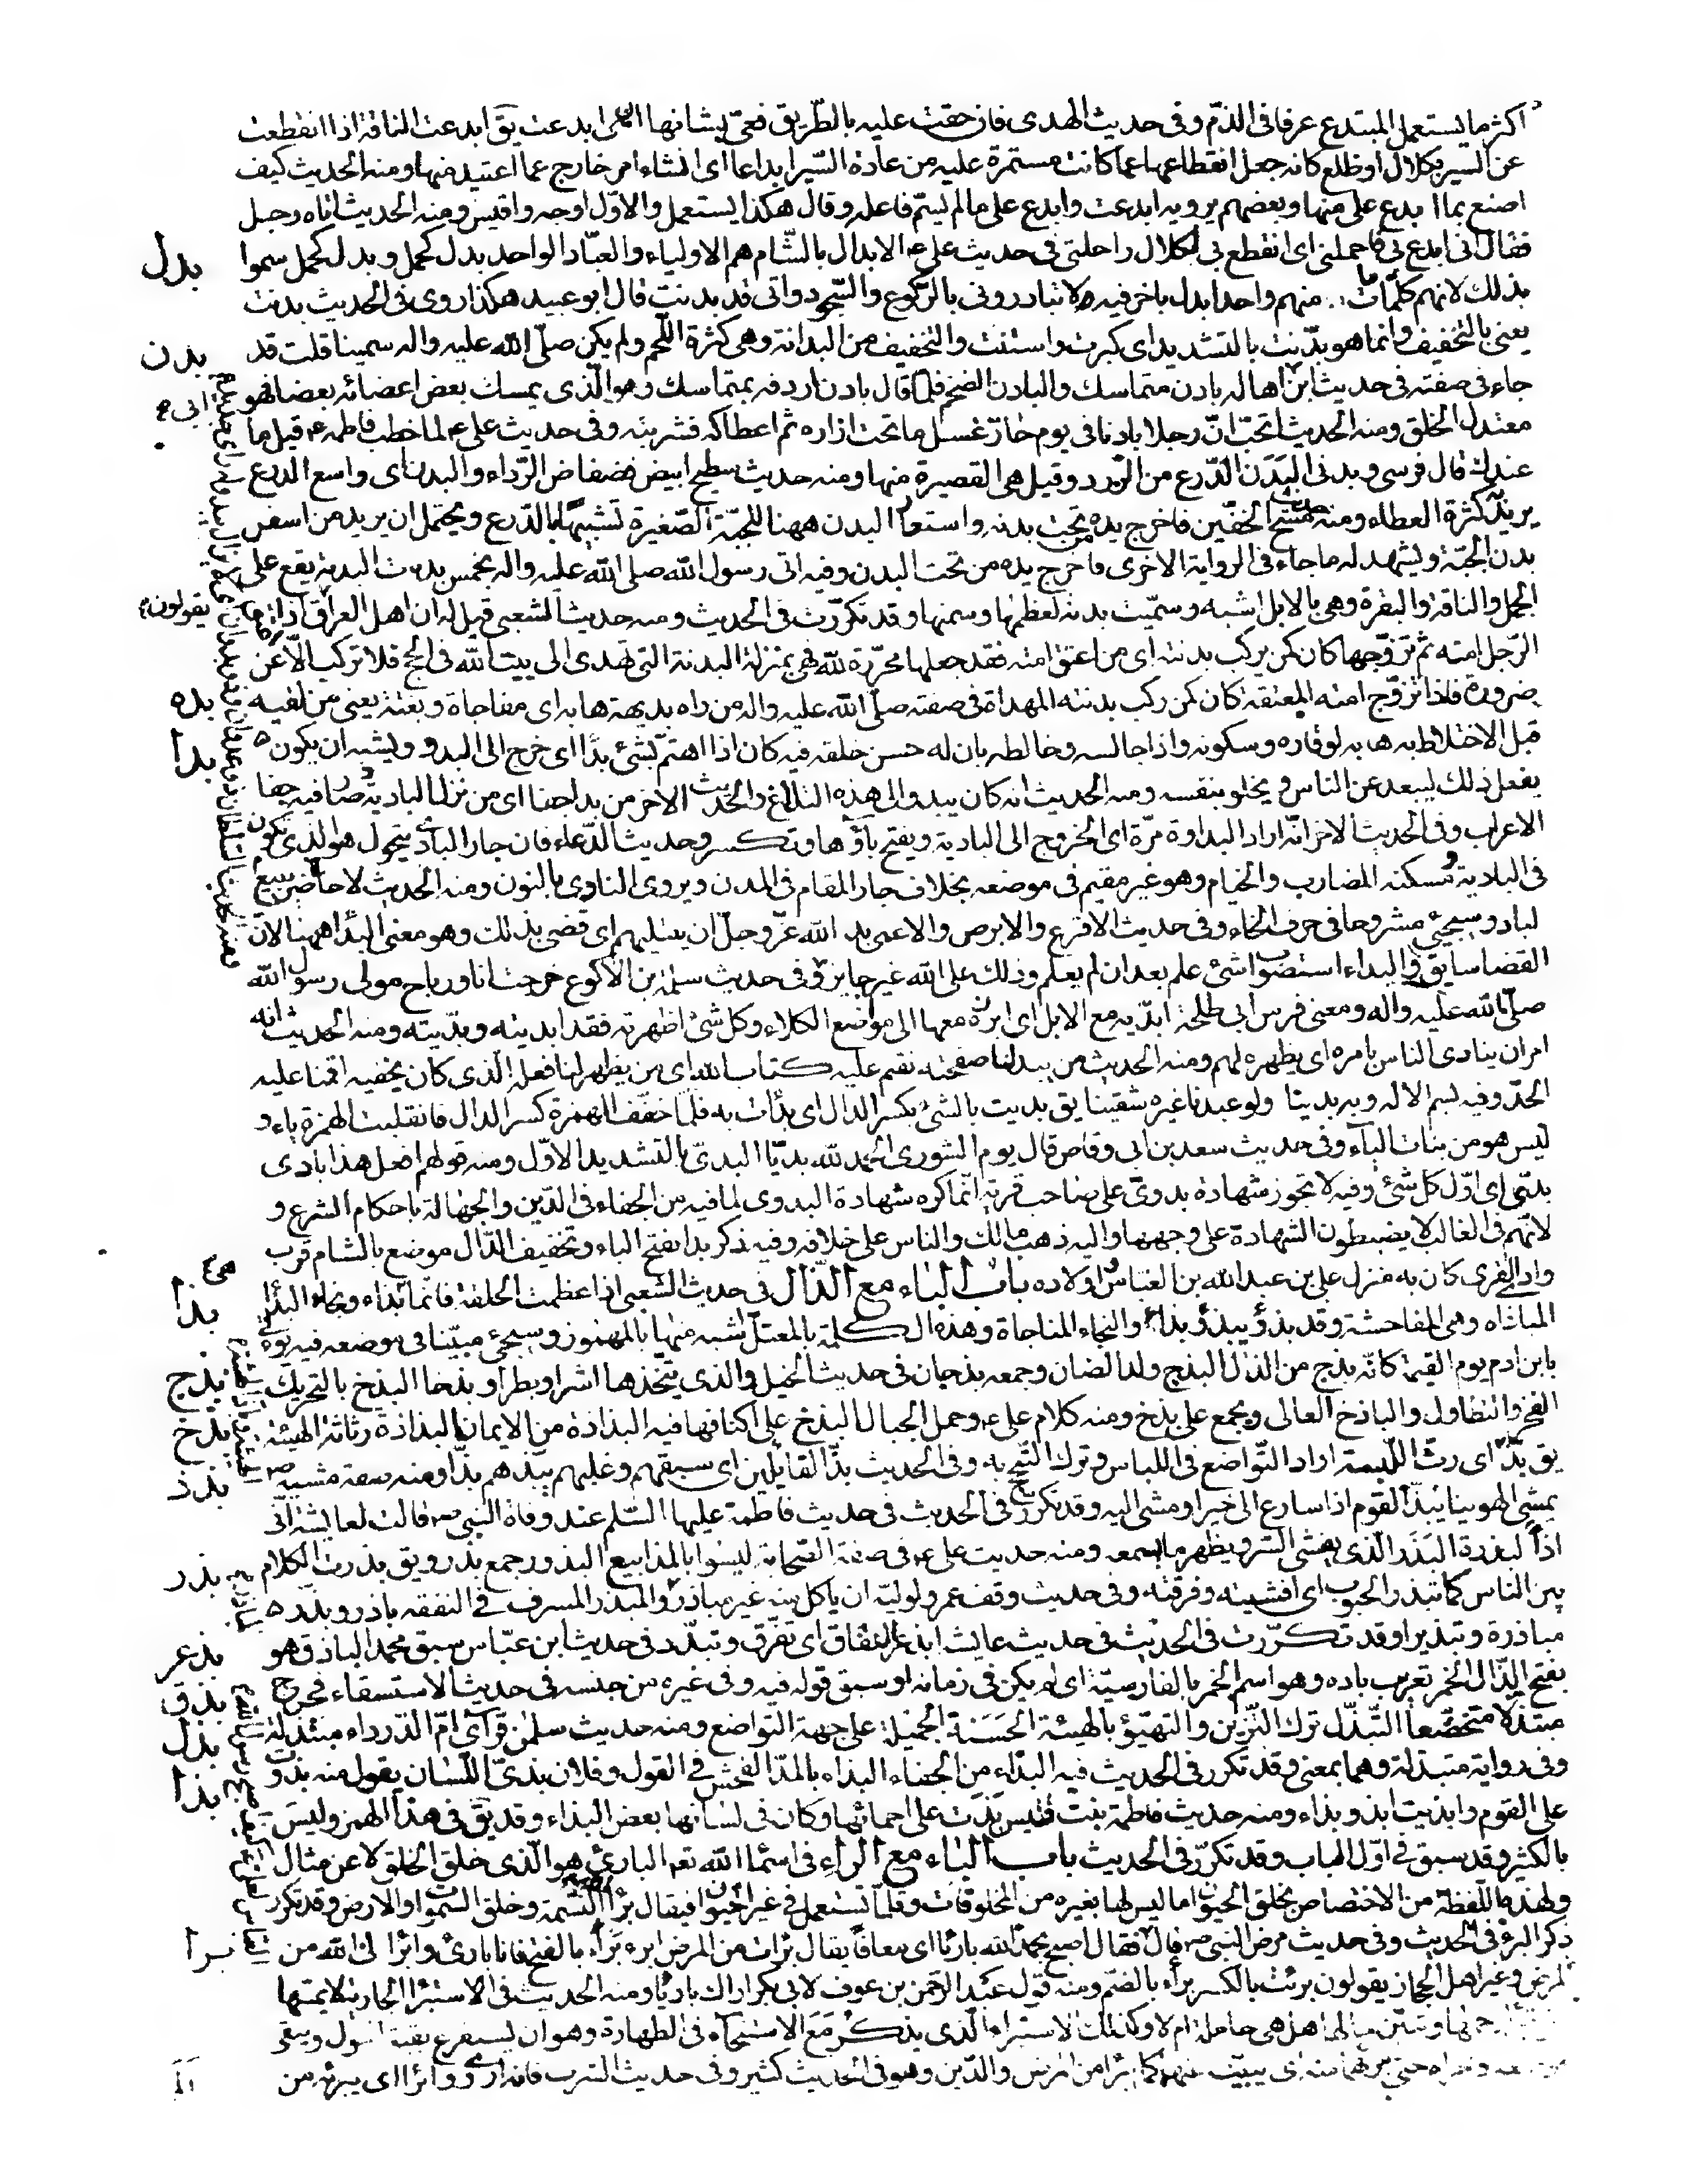 اكثر ما يستعمل المبتدع عرفا فى الذمّ وفى حديث الهدى فازحفت عليه بالطّريق فعىّ بشانها ان هى ابدعت يق ابدعت الناقة اذا انقطعت
عن السير بكلال او ظلع كانه جعل انقطاعها عما كانت مستمرة عليه من عادة السّير ابداعا اى انشاء امر خارج عما اعتيد منها ومنه الحديث كيف
اصنع بما ابدع علىّ منها وبعضهم يرويه ابدعت وابدع على ما لم يسمّ فاعله وقال هكذا يستعمل والاوّل اوجه واقيس ومنه الحديث اتاه رجل
فقال انى ابدع بى فاحملنى اى انقطع بى لكلال راحلتى فى حديث على ع الابدال بالشّام هم الاولياء والعبّاد الواحد بدل كحمل وبدل كجمل سموا
بدل
بذلك لانهم كلّما مات منهم واحد ابدل باخر فيه لا تبادرونى بالرّكوع والسّجود وانى قد بدنت قال ابو عبيد هكذا روى فى الحديث بدنت
يعنى بالتخفيف وانما هو بدّنت بالتشديد اى كبرت واسننت والتخفيف من البدانة وهى كثرة اللّحم ولم يكن صلّى الله عليه واله سمينا قلت قد
بدن
جاء فى صفته فى حديث ابن ابى هاله بادن متماسك والبادن الضخم فلمّا قال بادن اردفه بمتماسك وهو الّذى يمسك بعض اعضائه بعضا فهو
معتدل الخلق ومنه الحديث اتحبّ انّ رجلا بادنا فى يوم حارّ غسل ما تحت ازاره ثم اعطاكه فشربته وفى حديث على ع لما خطب فاطمه ع قيل ما
عندك قال فرسى وبدنى البَدَن الدّرع من الزرد وقيل هى القصيرة منها ومنه حديث سطيح ابيض فضفاض الرّداء والبدن اى واسع الدرع
يريد كثرة العطاء ومنه حديث مسح الخفّين فاخرج يده من تحت بدنه واستعار البدن ههنا للجبّة الصّغيرة تشبيها بالدّرع ويحتمل ان يريد من اسفل
بدن الجبّة ويشهد له ما جاء فى الرواية الاخرى فاخرج يده من تحت البدن وفيه اتى رسول الله صلى الله عليه واله بخمس بدنات البدنة يقع على
الجمل والناقة والبقرة وهى بالابل اشبه وسمّيت بدنة لعظمها وسمنها وقد تكرّرت فى الحديث ومنه حديث الشعبى قيل له ان اهل العراق يقولون اذا اعتق
الرّجل امته ثم تزوّجها كان كمن يركب بدنته اى من اعتق امته فقد جعلها محرّرة لله فهى بمنزلة البدنة التى تهدى الى بيت الله فى الحج فلا تركب الّا عن
ضرورة فاذا تزوّج امته المعتقة كان كمن ركب بدنته المهداة فى صفته صلّى الله عليه واله من راه بديهة هابه اى مفاجاة وبغتة يعنى من لقيه
بده
قبل الاختلاط به هابه لوقاره وسكونه واذا جالسه وخالطه بان له حسن خلقه فيه كان اذا اهتمّ بشئ بدا اى خرج الى البدو ويشبه ان يكون
بدا
يفعل ذلك ليبعد عن الناس ويخلو بنفسه ومنه الحديث انه كان يبدو الى هذه التلاع والحديث الاخر من بدا جفا اى من نزل البادية صار فيه جفا
الاعراب وفى الحديث الاخر انّه اراد البداوة مرّة اى الخروج الى البادية ويفتح باؤها وتكسر وحديث الدّعاء فان جار البادى يتحول هو الذى يكون
فى البادية ومسكنه المضارب والخيام وهو غير مقيم فى موضعه بخلاف جار المقام فى المدن ويروى النادى بالنون ومنه الحديث لا يبيع حاضر
لباد وسيجئ مشروحا فى حرف الحاء وفى حديث الاقرع والابرص والاعمى بدا الله عزّ وجلّ ان يبتليهم اى قضى بذلك وهو معنى البدا ههنا لانّ
القضا سابق والبداء استصواب شئ علم بعد ان لم يعلم وذلك على الله غير جايز وفى حديث سلمة بن الاكوع خرجت انا ورباح مولى رسول الله
صلّى الله عليه واله ومعى فرس ابى طلحة ابدّيه مع الابل اى ابرزه معها الى مواضع الكلاء وكل شئ اظهرته فقد ابديته وبدّيته ومنه الحديث انه
امر ان ينادى الناس بامره اى يظهره لهم ومنه الحديث من يبد لنا صفحته نقم عليه كتاب الله اى من يظهر لنا فعله الّذى كان يخفيه اقمنا عليه
الحدّ وفيه بسم الاله وبه بدينا ولو عبدنا غيره شقينا يق بديت بالشئ بكسر الدال اى بدأت به فلما خفّف الهمزة كسر الدال فانقلبت الهمزة ياء و
ليس هو من بنات الياء وفى حديث سعد بن ابى وقاص قال يوم الشورى الحمد لله بديّا البدىّ بالتشديد الاوّل ومنه قولهم افعل هذا بادى
بدئ اى اوّل كل شئ وفيه لا تجوز شهادة بدوىّ على صاحب قرية انّما كره شهادة البدوى لما فيه من الجفاء فى الدّين والجهالة باحكام الشرع و
لانّهم فى الغالب لا يضبطون الشهادة على وجهها واليه ذهب مالك والناس على خلافه وفيه ذكر بدا بفتح الباء وتخفيف الدّال موضع بالشام قرب
وادى القرى كان به منزل على بن عبد الله بن العباس واولاده باب الباء مع الذّال فى حديث الشعبى اذا عظمت الحلقة فانما هى بذاء ونجاء البذا
بذا
المباذاه وهى المفاحشة وقد بذؤ يبذؤ بذاءً والنجاء المناجاة وهذه الكلمة بالمعتل اشبه منها بالمهموز وسيجئ مبيّنا فى موضعه فيه يؤتى
بابن ادم يوم القيمة كانّه بذج من الذل البذج ولد الضان وجمعه بذجان فى حديث الخيل والذى يتخذها اشرا وبطرا وبذخا البذخ بالتحريك
بذج
الفخر والتطاول والباذخ العالى ويجمع على بذخ ومنه كلام على ع وحمل الجبال البذخ على اكتافها فيه البذاذة من الايمان البذاذة رثاثة الهيئة
بذخ
يق بذّ اى رثّ اللّبسة اراد التّواضع فى اللباس وترك التّبجّح به وفى الحديث بذّ القايلين اى سبقهم وغلبهم يبذّهم بذّا ومنه صفة مشيه ص
بذذ
يمشى الهوينا يبذّ القوم اذا سارع الى خير او مشى اليه وقد تكرّر فى الحديث فى حديث فاطمة عليها السّلم عند وفاة النبى ص قالت لعايشة انّى
اذاً لبذرة البَذَر الّذى يفشى السّر ويظهر ما يسمعه ومنه حديث على ع فى صفة الصّحابة ليسوا بالمذاييع البذر جمع بذور يق بذرت الكلام
بذر
بين الناس كما تبذر الحبوب اى افشيته وفرقته وفى حديث وقف عمر ولوليّه ان ياكل منه غير مباذر والمبذر المسرف فى النفقه باذر وبذر
مباذرة وتبذيرا وقد تكرّرت فى الحديث فى حديث عايشة ابذعرّ النفاق اى تفرّق وتبدّد فى حديث ابن عبّاس سبق محمد الباذق هو
بذعر
بفتح الذّال الخمر تعريب باده وهو اسم الخمر بالفارسيّة اى لم يكن فى زمانه او سبق قوله فيه وفى غيره من جنسه فى حديث الاستسقاء فخرج
بذق
متبذّلا متخضّعا التّبذّل ترك التّزيّن والتهيّؤ بالهيئة الحَسَنة الجميلة على جهة التواضع ومنه حديث سلمن فرآى امّ الدّرداء مبتذلة
بذل
وفى رواية متبذّلة وهما بمعنى وقد تكرر فى الحديث فيه البذاء من الجفاء البذاء بالمدّ الفحش فى القول وفلان بذىّ اللّسان يقول منه بذوت
بذا
على القوم وابذيت ابذو بذاء ومنه حديث فاطمة بنت قيس بَذَت على احمائها وكان فى لسانها بعض البذاء وقد يق فى هذا الهمز وليس
بالكثير وقد سبق فى اوّل الباب وقد تكرّر فى الحديث باب الباء مع الراء فى اسماء الله تعم البارئ هو الّذى خلق الخلق لا عن مثال
ولهذه اللّفظة من الاختصاص بخلق الحيوان ما ليس لها بغيره من المخلوقات وقلّما تستعمل فى غير الحيوان فيقال برأ الله النّسمة وخلق السّموات والارض وقد تكرر
ذكر البرء فى الحديث وفى حديث مرض النبى ص قال فقال اصبح بحمد الله بارئا اى معافاً يقال برات من المرض ابرء بَرأً بالفتح فانا بارئ وابرأنى الله من
برا
المرض وغير اهل الحجاز يقولون برئت بالكسر برأ بالضمّ ومنه قول عبد الرّحمن بن عوف لابى بكر اراك بارئا ومنه الحديث فى الاستبراء الجارية لا يمسّها
رحمها وتبيّن حالها هل هى حاملة ام لا وكذلك الاستبراء الّذى يذكر مَعَ الاستنجاء فى الطهارة وهو ان يستفرغ بقية البول وينقى
حتى يبرئهما منه اى يبيّنه عنهما كما يبرأ من المرض والدّين وهو فى الحديث كثير وفى حديث الشرب فانه اروى وابرأ اى يبرئه من